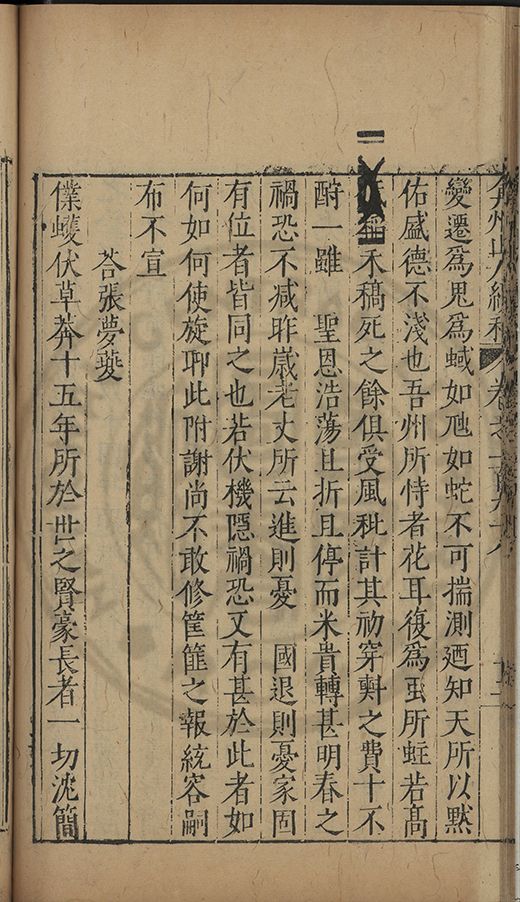 弇州山人續稿 卷之一百
變遷爲鬼爲蜮如虺如蛇不可揣測廼知天所以黙
佑盛德不淺也吾州所恃者花耳復爲虫所蛀若髙
稲禾稿死之餘俱受風秕計其初穿之費十不
酧一雖 聖恩浩蕩且折且停而米貴轉甚明春之
禍恐不减昨嵗老丈所云進則憂 國退則憂家固
有位者皆同之也若伏機隱禍恐又有甚於此者如
何如何使旋聊此附謝尚不敢修筐篚之報統容嗣
布不宣
荅張夢蘷
僕蠖伏草莾十五年所於世之賢豪長者一切洮簡